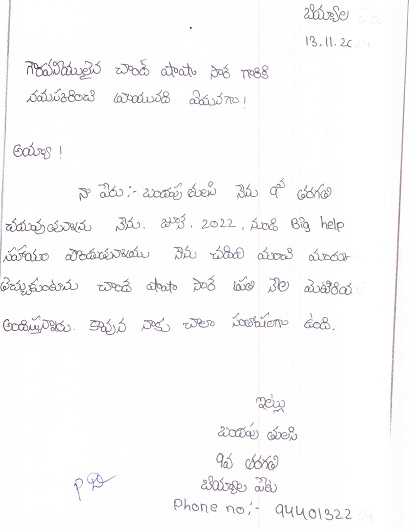 బెయ్యాల
13.11.20
గౌరవనీయులైన చాంద్ పాషా సార్ గారికి
నమస్కరించి వ్రాయునది ఏమనగా!
అయ్యా!
నా పేరు:- బయ్యపు తులసి నేను 9వ తరగతి
చదువుతున్నాను నేను. జూన్, 2022, నుండి Big help
సహాయం పొందుతున్నాను నేను చదివి మంచి మార్కు
తెచ్చుకుంటాను చాంద్ పాషా సార్ ప్రతి నెల మెటీరియ
అందిస్తున్నారు. కావున నాకు చాలా సంతోషంగా ఉంది.
ఇట్లు
బయ్యపు తులసి
9వ తరగతి
బెయ్యాల పేట
Phone no:- 94401322